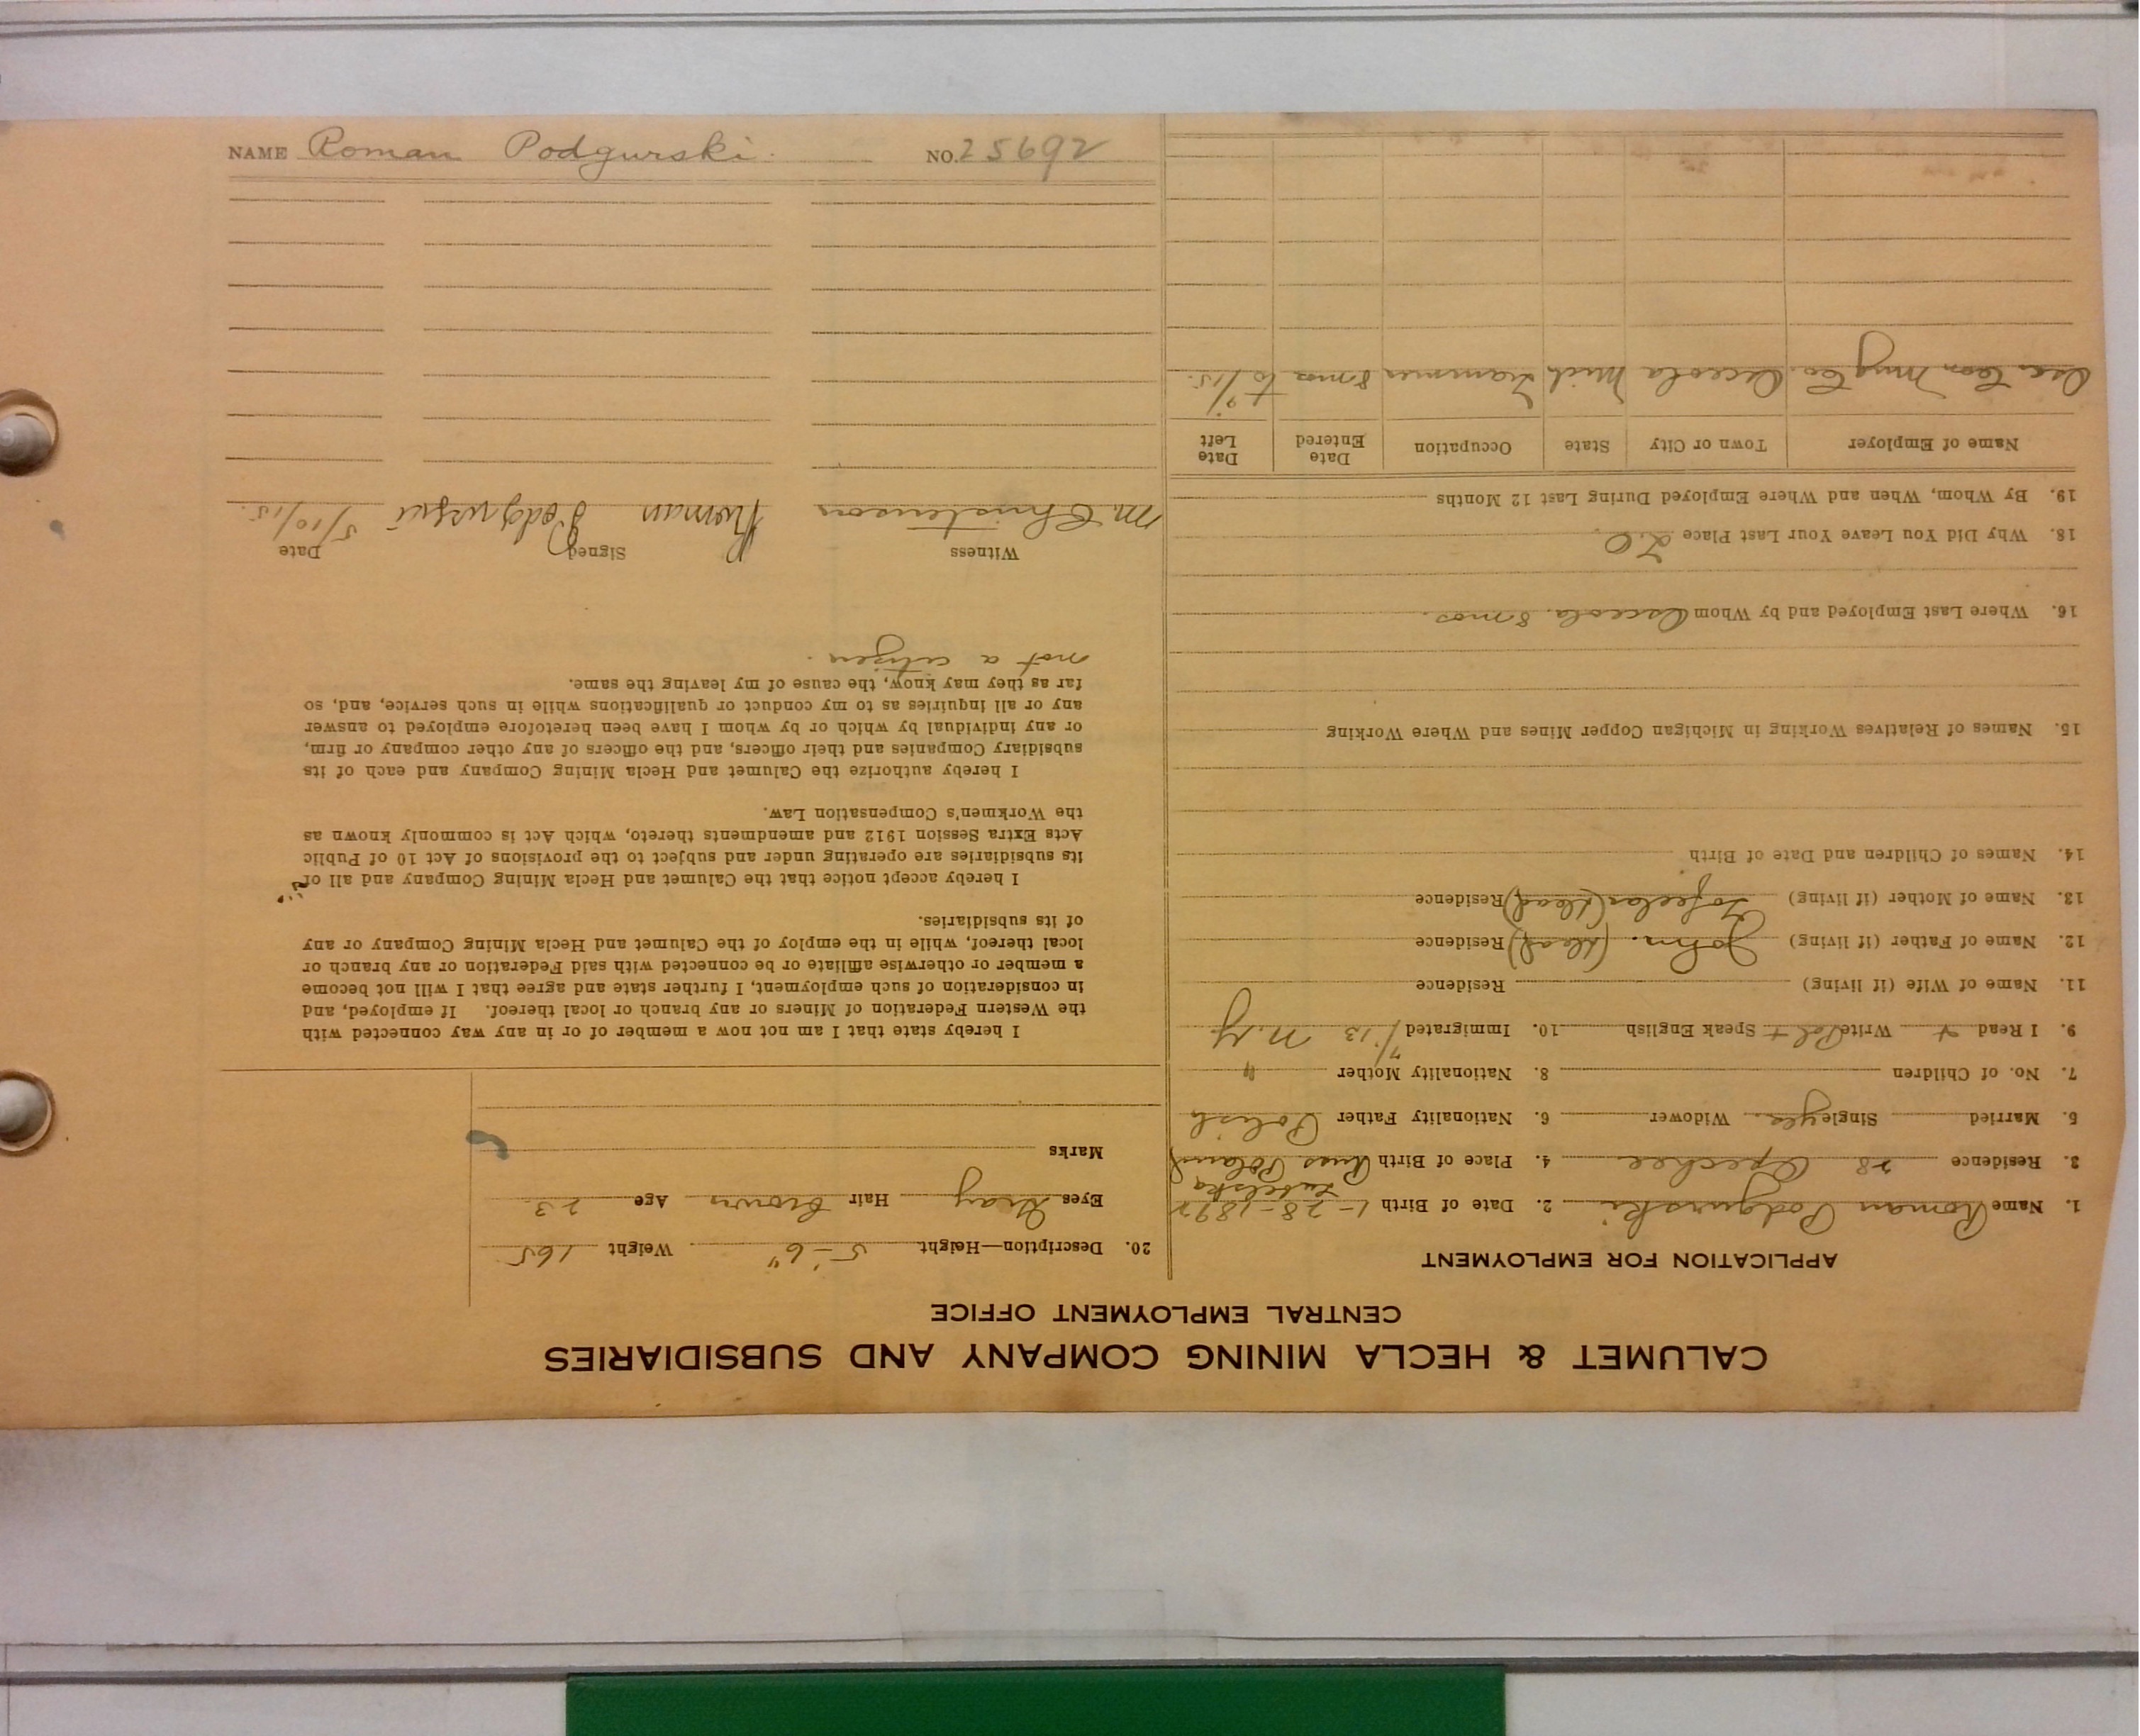 NAME Roman Podgurski. NO. 25692
CALUMET & HECLA MINING COMPANY AND SUBSIDIARIES
CENTRAL EMPLOYMENT OFFICE
APPLICATION FOR EMPLOYMENT
1. Name Roman Podgurski 2. Date of Birth 1-28-1892
3. Residence 28 Opechee 4. Place of Birth Russ Poland
5. Married Single yes Widower 6. Nationality Father Polish
7. No. of Children 8. Nationality Mother "
9. I Read + Write Pol + Speak English 10. Immigrated 7/13 N.Y
11. Name of Wife (if living) Residence
12. Name of Father (if living) John. (dead) Residence
13. Name of Mother (if living) (dead) Residence
14. Names of Children and Date of Birth
15. Names of Relatives Working in Michigan Copper Mines and Where Working
16. Where Last Employed and by Whom Osceola. 8 mos.
18. Why Did You Leave Your Last Place
19. By Whom, When and Where Employed During Last 12 Months
Name of Employer Town or City State Occupation Date Entered Date Left
Osc. Con. Mng Co. Osceola Mich Trammer 8 mos to 9/15.
20. Description—Height 5'-6" Weight 165
Eyes Gray Hair Brown Age 23
Marks
I hereby state that I am not now a member of or in any way connected with
the Western Federation of Miners or any branch or local thereof. If employed, and
in consideration of such employment, I further state and agree that I will not become
a member or otherwise affiliate or be connected with said Federation or any branch or
local thereof, while in the employ of the Calumet and Hecla Mining Company or any
of its subsidiaries.
I hereby accept notice that the Calumet and Hecla Mining Company and all of
its subsidiaries are operating under and subject to the provisions of Act 10 of Public
Acts Extra Session 1912 and amendments thereto, which Act is commonly known as
the Workmen's Compensation Law.
I hereby authorize the Calumet and Hecla Mining Company and each of its
subsidiary Companies and their officers, and the officers of any other company or firm,
or any individual by which or by whom I have been heretofore employed to answer
any or all inquiries as to my conduct or qualifications while in such service, and, so
far as they may know, the cause of my leaving the same.
not a citizen.
Witness Signed Date
M. Christenson Roman Podgurski 5/10/15.